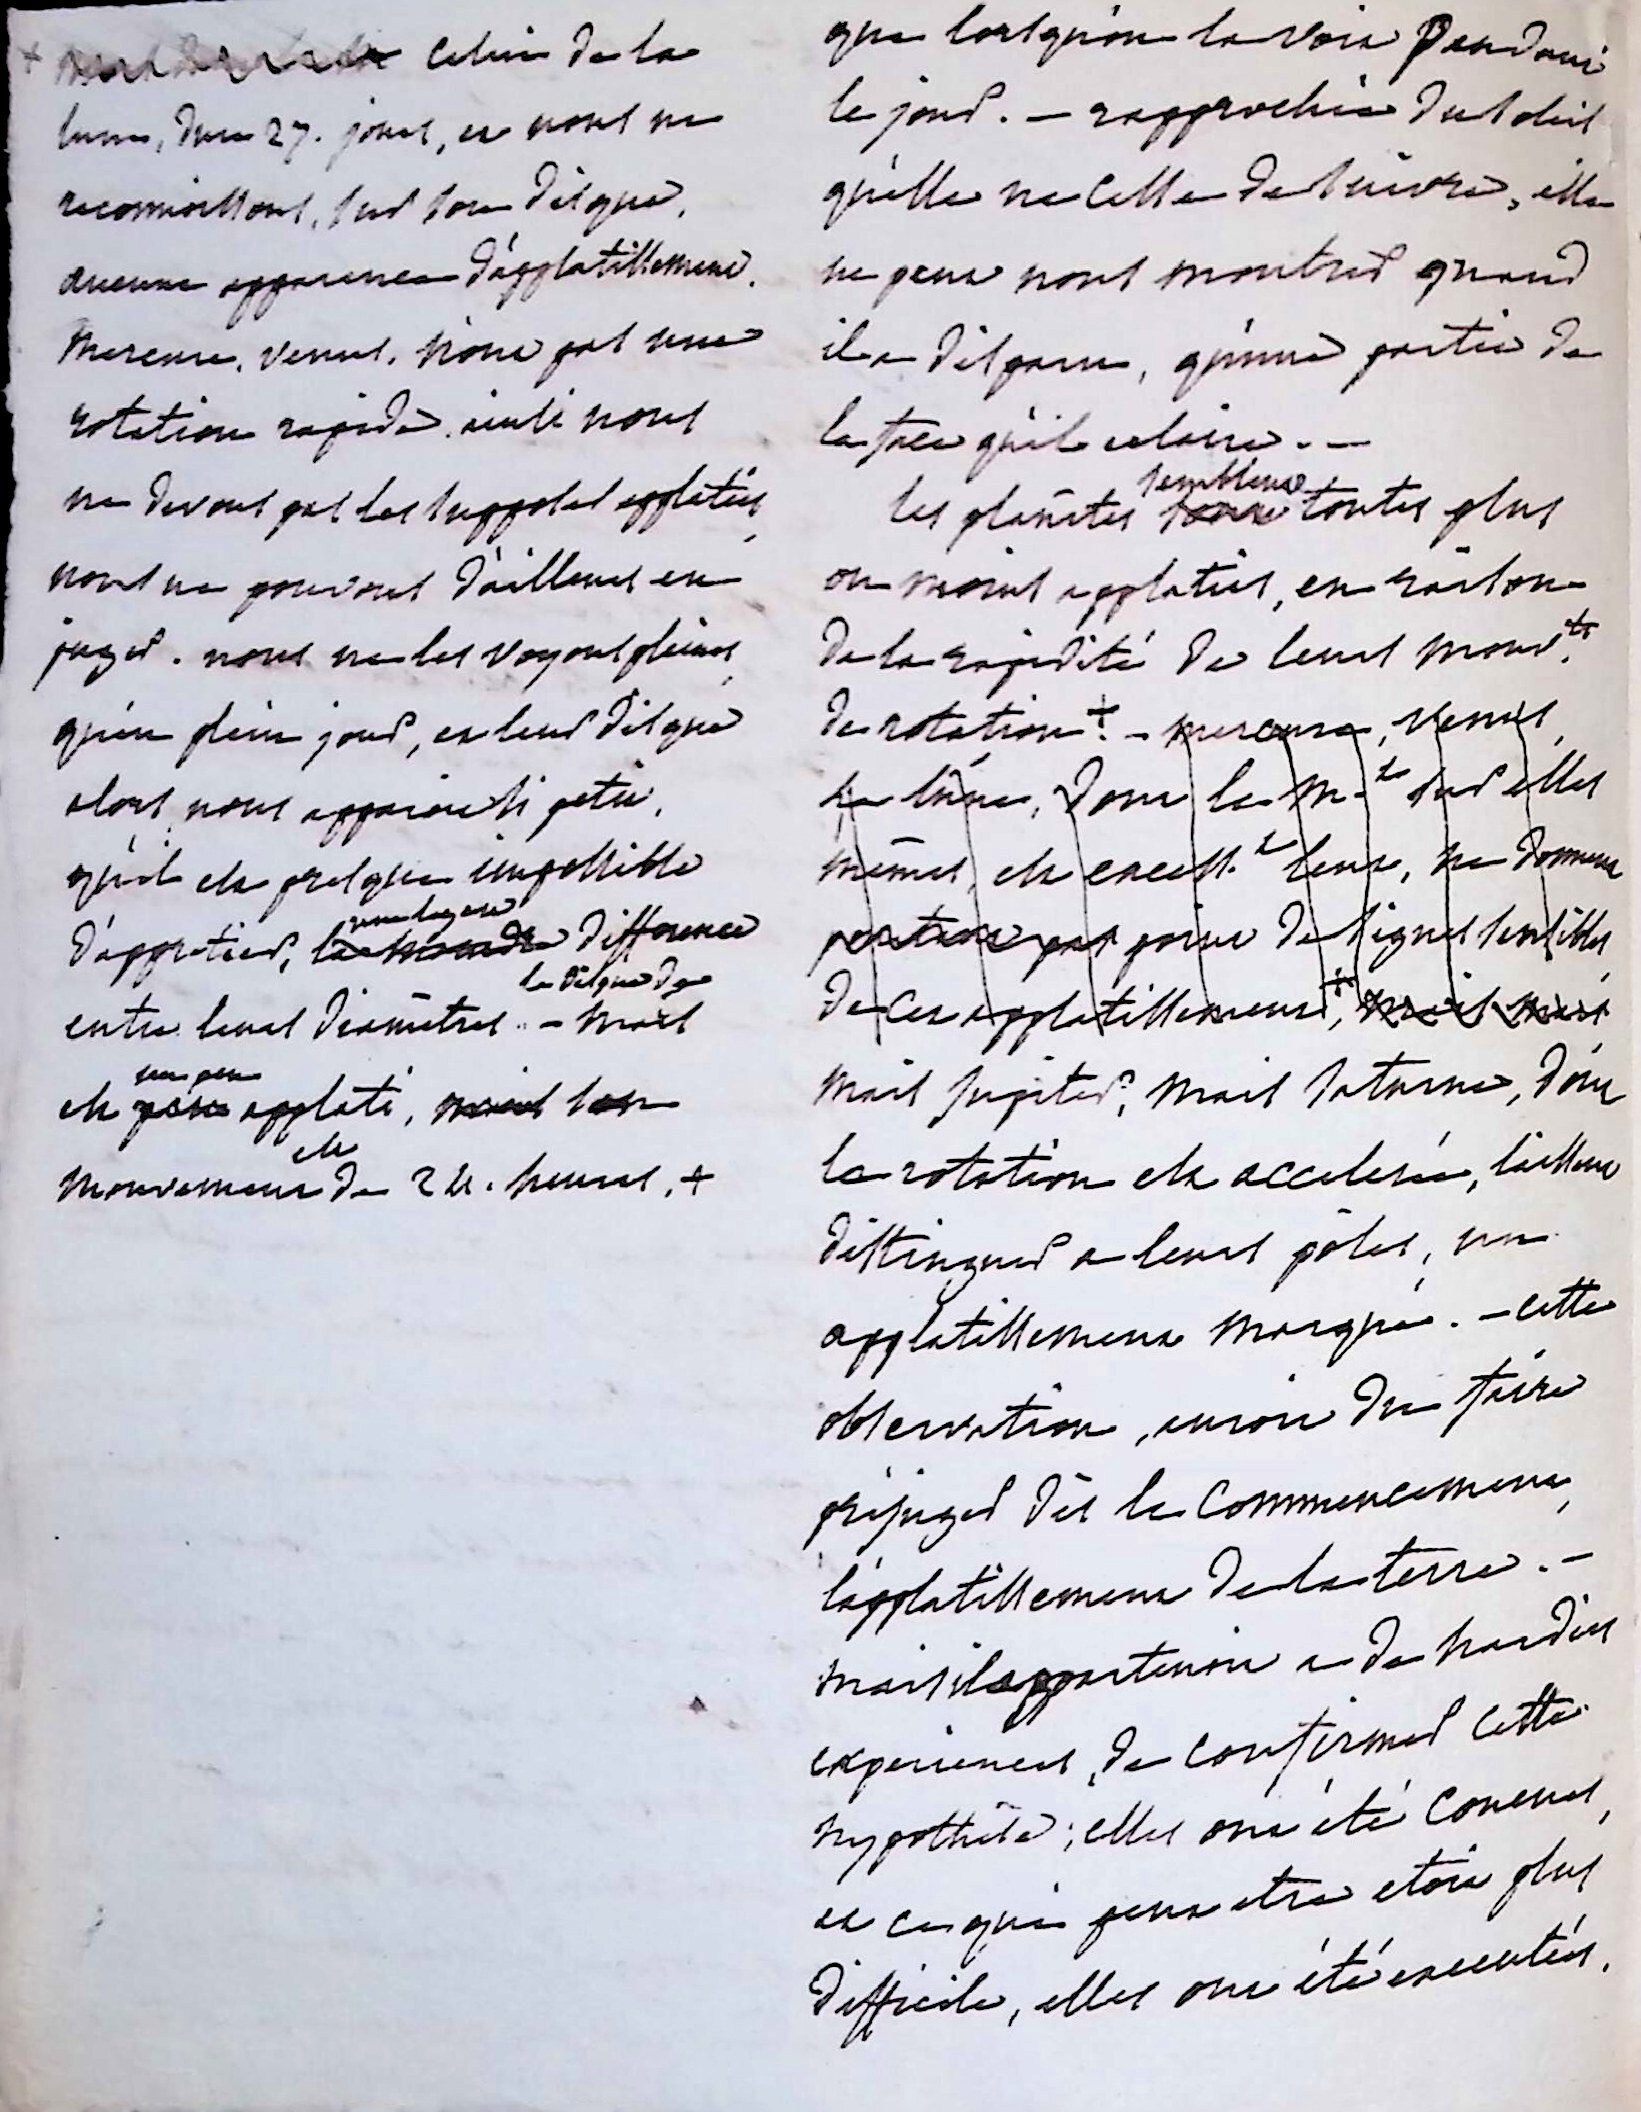 + celui de la
lune, dure 27. jours, et nous ne
reconnoissons, sur son disque,
aucune apparence d'applatissement.
mercure, venus, n'ont pas une
rotation rapide. ainsi nous
ne devons pas les supposer applaties,
nous ne pouvons d'ailleurs en
juger. nous ne les voyons pleines,
qu'en plein jour, et leur disque
alors nous apparoit si petit,
qu'il est presque impossible
une legere
d'apprétier, la moindre difference
le disque de
entre leurs diamètres. – mars
un peu
est peu applati, mais son
est
mouvement de 24. heures. +
que lorsqu'on la voit pendant
le jour. – rapprochée du soleil
qu'elle ne cesse de suivre, elle
ne peut nous montrer quand
il a disparu, qu'une partie de
la face qu'il eclaire. –
semblent
les planètes sont toutes plus
ou moins applaties, en raison
de la rapidité de leurs mouv.ts
de rotation +. – mercure, venus,
la lune, dont le m.t sur elles
mêmes, est excess.t lent, ne donnent
point de signes sensibles
de ces applatissements, mais mars
mais jupiter, mais saturne, dont
la rotation est acceleree, laissent
distinguer a leurs pôles, un
applatissement marqué. – cette
observation, auroit du faire
préjuger dès le commencement,
l'applatissement de la terre. –
mais il appartenoit a de hardies
experiences, de confirmer cette
hypothèse; elles ont été concues,
et ce qui peut etre etoit plus
difficile, elles ont été executées.